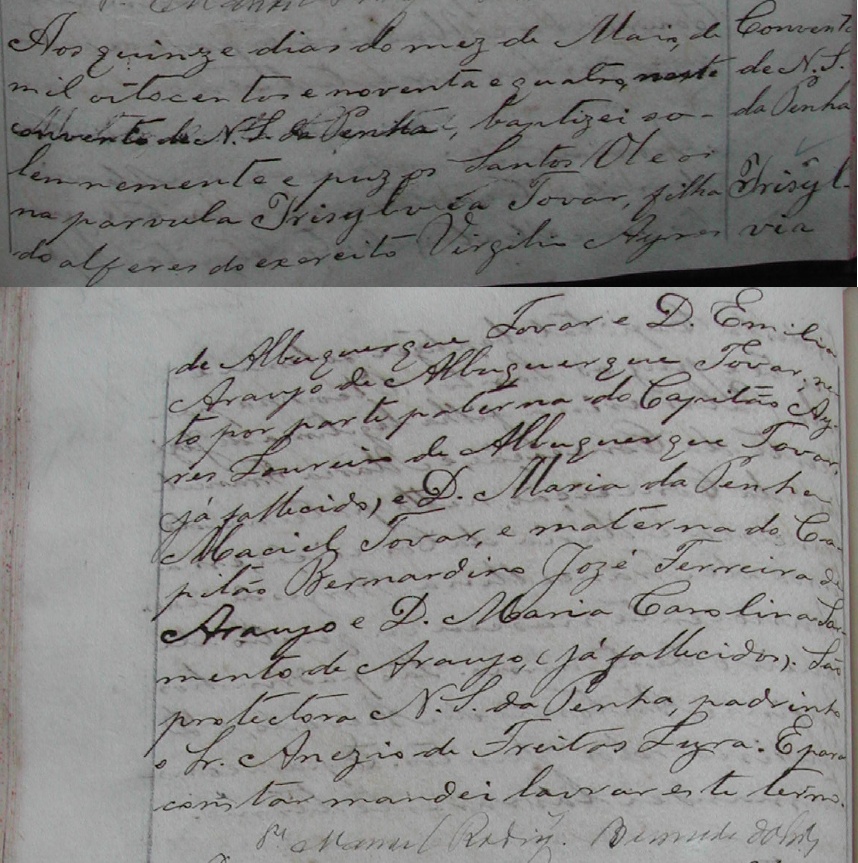 Aos quinze dias do mez de Maio, de
mil oitocentos e noventa e quatro, neste
convento de N. S. da Penha, baptizei so-
lennemente e puz os Santos Oleos
na parvula Trisylvia Tovar, filha
do alferes do exercito Virgilio Ayres
Convento
de N. S.
da Penha
Trisyl-
via
de Albuquerque Tovar e D. Emilia
Araujo de Albuquerque Tovar, ne
to por parte paterna do Capitão Ay-
res Loureiro de Albuquerque Tovar,
já fallecido, e D. Maria da Penha
Maciel Tovar, e materna do Ca-
pitão Bernardino Jozé Ferreira de
Araujo e D. Maria Carolina
mento de Araujo, (já fallecidos). São
protectora N. S. da Penha, padrinho
o Sr. Anezio de Freitas Lyra. E para
constar mandei lavrar este termo.
Pe Manuel